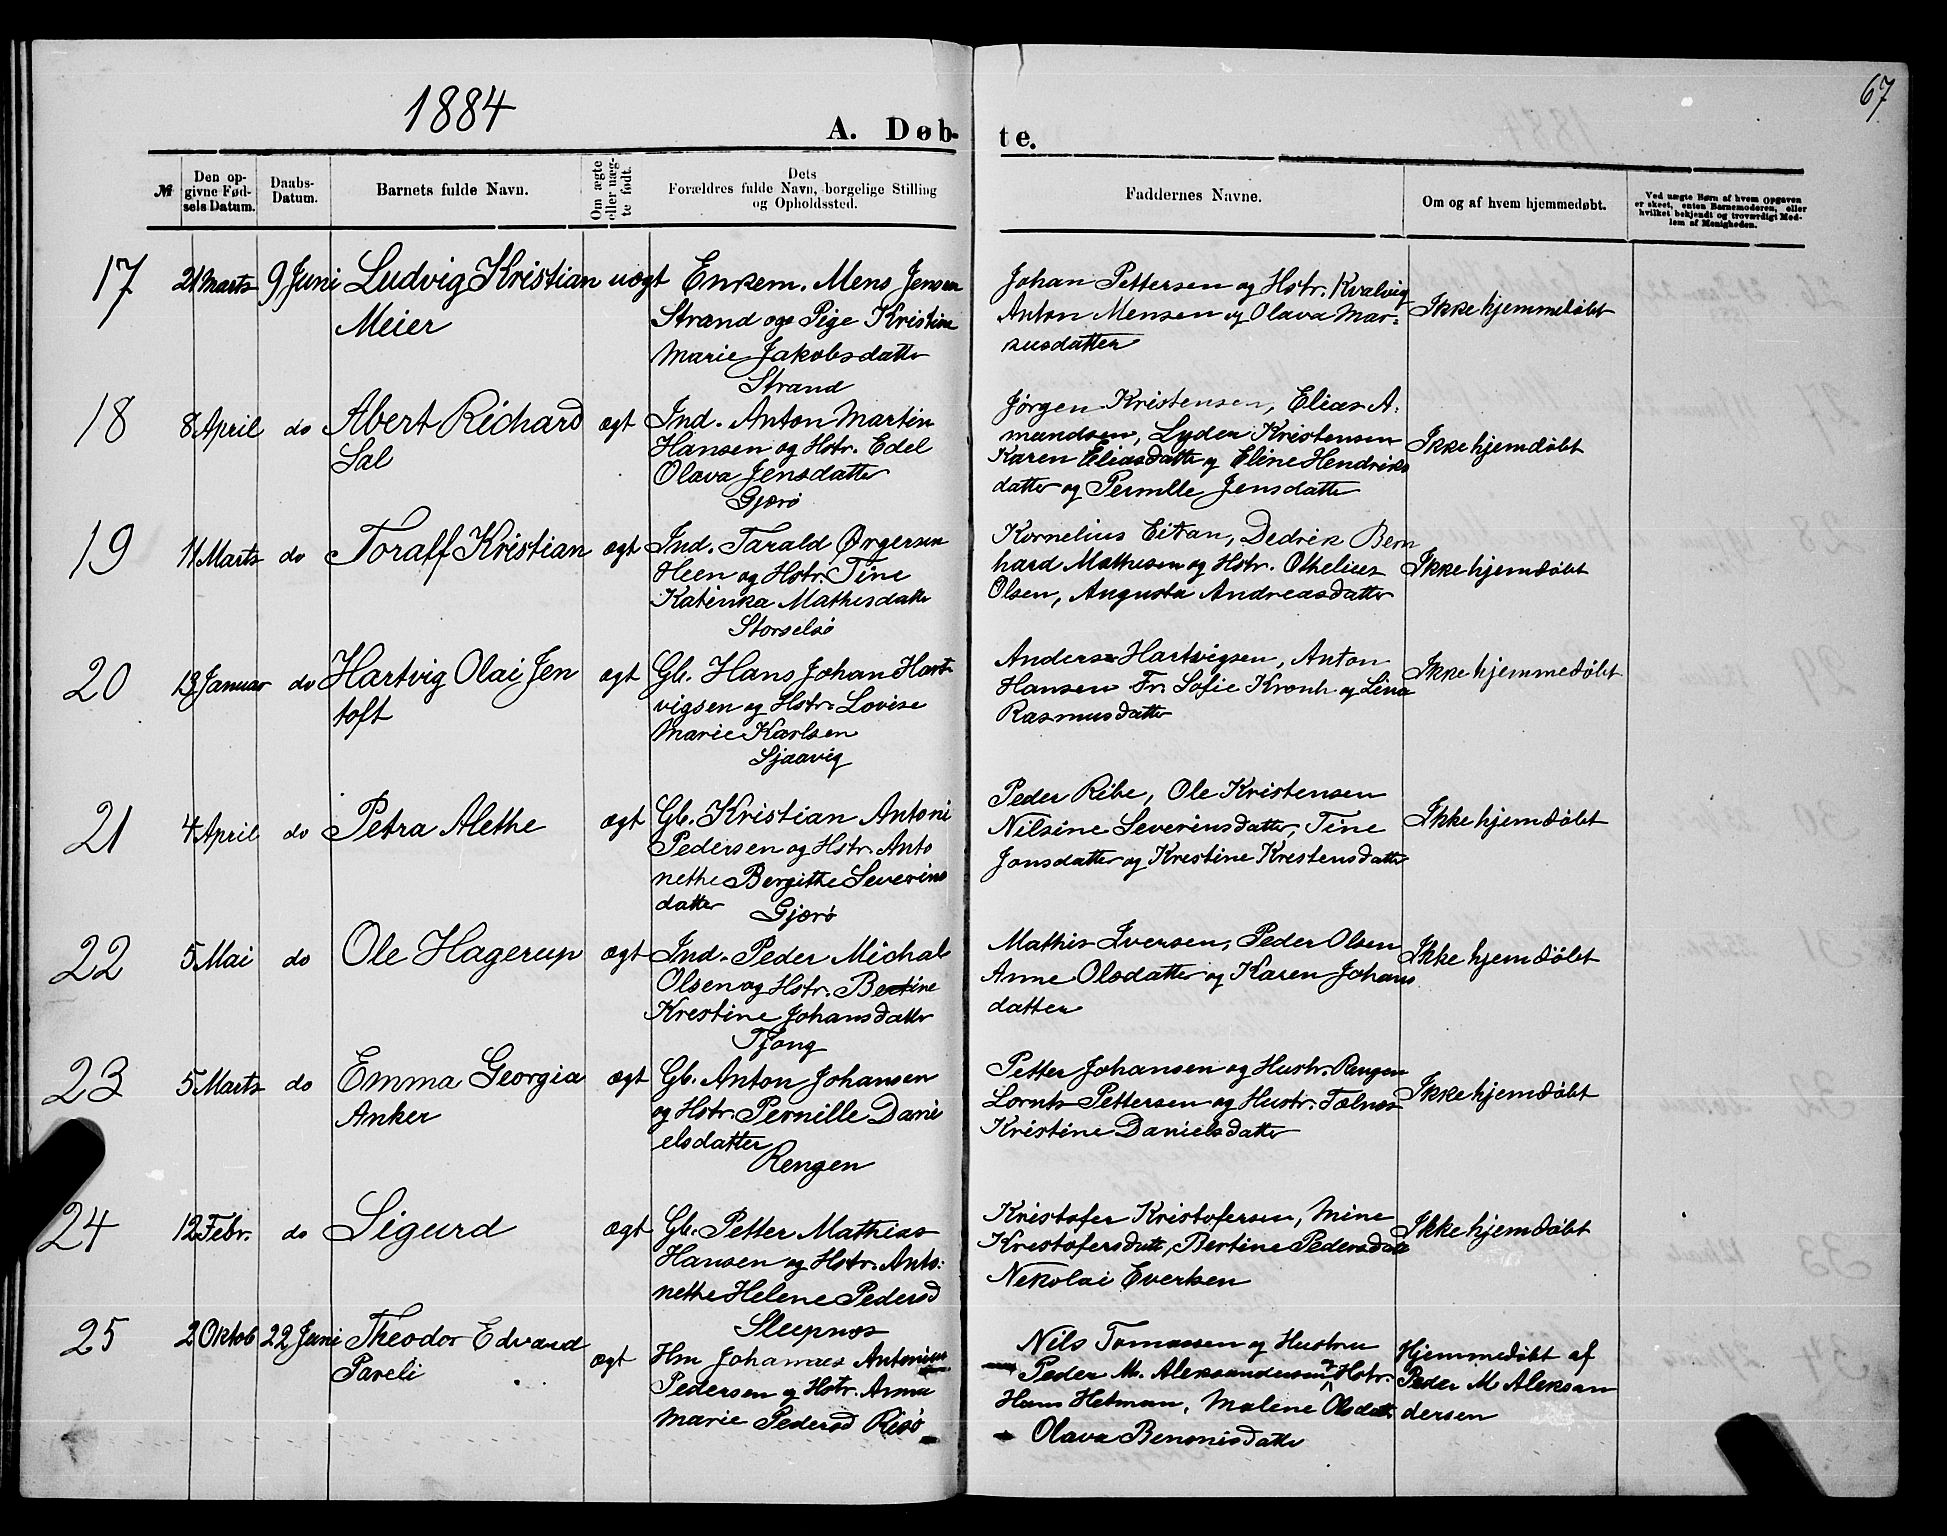 1884
67
A. Døb- te.
№ | Den opgivne Fødsels Datum. | Daabs-Datum. | Barnets fulde Navn. | Om ægte eller uægte født. | Dets Forældres fulde Navn, borgelige Stilling og Opholdssted. | Faddernes Navne. | Om og af hvem hjemmedøbt. | Ved uægte Børn af hvem Opgaven er skeet, enten Barnemoderen, eller hvilket bekjendt og troværdigt Medlem af Menigheden.
17 21 Marts 9 Juni Ludvig Kristian uægt Enkem. Mens Jensen
Meier
Strand og Pige Kristine
Marie Jakobsdatter
Strand
Johan Pettersen og Hstr. Kvalvig
Anton Mensen og Olava Mar-
kusdatter
Ikke hjemmedøbt
18 8 April do Abert Richard ægt Ind. Anton Martin
Sal
Hansen og Hstr. Edel
Olava Jensdatter
Gjærø
Jørgen Kristensen, Elias A.
mundsen, Lyder Kristensen
Karen Eliasdatter og Eline Hendriks
datter og Pernille Jensdatter
Ikke hjemdøbt
19 11 Marts do Toralf Kristian ægt Ind. Tarald Ørgersen
Heen og Hstr. Tine
Katinka Mathisdatter
Storselsø
Kornelius Eitran, Dedrik Bern
hard Mathisen og Hstr. Othelius
Olsen, Augusta Andreasdatter
Ikke hjemdøbt
20 13 Januar do Hartvig Olai Jen ægt Gb. Hans Johan Hart
toft
vigsen og Hstr. Lovise
Marie Karlsen
Sjaavig
Anders Hartvigsen, Anton
Hansen Fr. Sofie Kronh og Lina
Rasmusdatter
Ikke hjemmedøbt
21 4 April do Petra Alethe ægt Gb. Kristian Antoni
Pedersen og Hstr. Anto
nethe Bergithe Severins
datter Gjærø
Peder Ribe, Ole Kristensen
Nilsine Severinsdatter, Tine
Jonsdatter og Kristine Kristensdatter
Ikke hjemdøbt
22 5 Mai do Ole Hagerup ægt Ind. Peder Michal
Olsen og Hstr. Bertine
Krestine Johansdatter
Tjong
Mathis Iversen, Peder Olsen
Anne Olsdatter og Karen Johans
datter
Ikke hjemdøbt
23 5 Marts do Emma Georgia ægt Gb. Anton Johansen
Anker
og Hstr. Pernille Dani
elsdatter
Rengen
Petter Johansen og Hustr. Rengen
Lornts Pettersen og Hustr. Selnæs
Kristine Danielsdatter
Ikke hjemdøbt
24 12 Febr. do Sigurd ægt Gb. Petter Mathias
Hansen og Hstr. Anto-
nethe Helene Pedersd
Sleepnæs
Kristofer Kristofersen, Mine
Krestofersdatt, Bertine Pedersdatt
Nekolai Evertsen
Ikke hjemdøbt
25 2 Oktob 22 Juni Theodor Edvard ægt Hm Johannes Antonius
Pareli
Pedersen og Hstr. Anna
Marie Pedersd Risø
Nils Tomassen og Hustru
Peder M. Aleksandersen & Hstr.
Hans Hetman, Malene Olsdatt
Olava Benonisdatter
Hjemmedøbt af
Peder M Aleksan
dersen